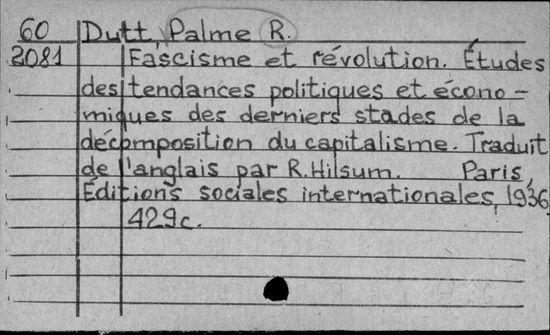 60 Dutt, Palme R.
2081 Fascisme et révolution. Études
des tendances politiques et écono-
miques des derniers stades de la
décomposition du capitalisme. Traduit
de l'anglais par R. Hilsum. Paris,
Editions sociales internationales, 1936,
429c.